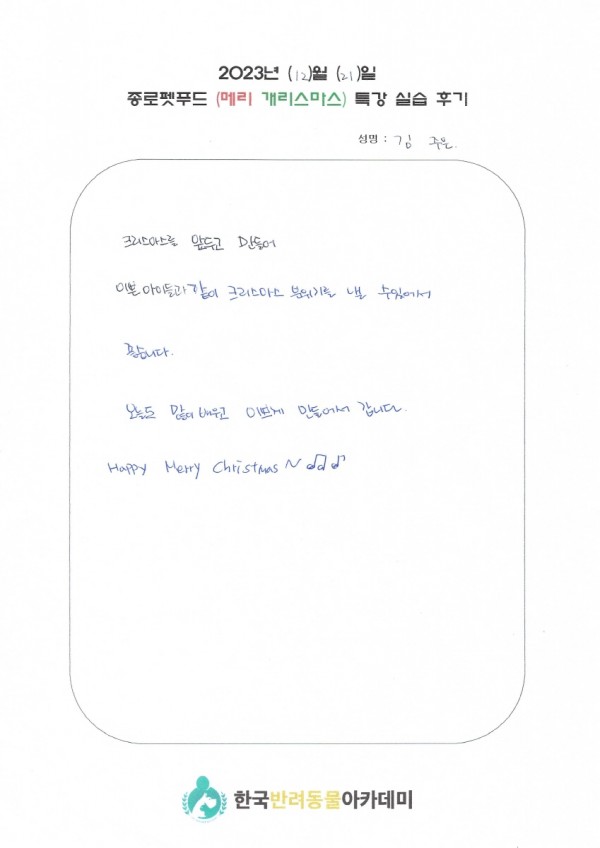 2023년 (12)월 (21)일
종로펫푸드 (메리 개리스마스) 특강 실습 후기
성명 : 김 주은.
크리스마스를 앞두고 만들어
이쁜 아이들과 같이 크리스마스 분위기를 낼 수있어서
좋습니다.
오늘도 많이 배우고 이쁘게 만들어서 갑니다.
Happy Merry Christmas ~ ♫♪
한국반려동물아카데미